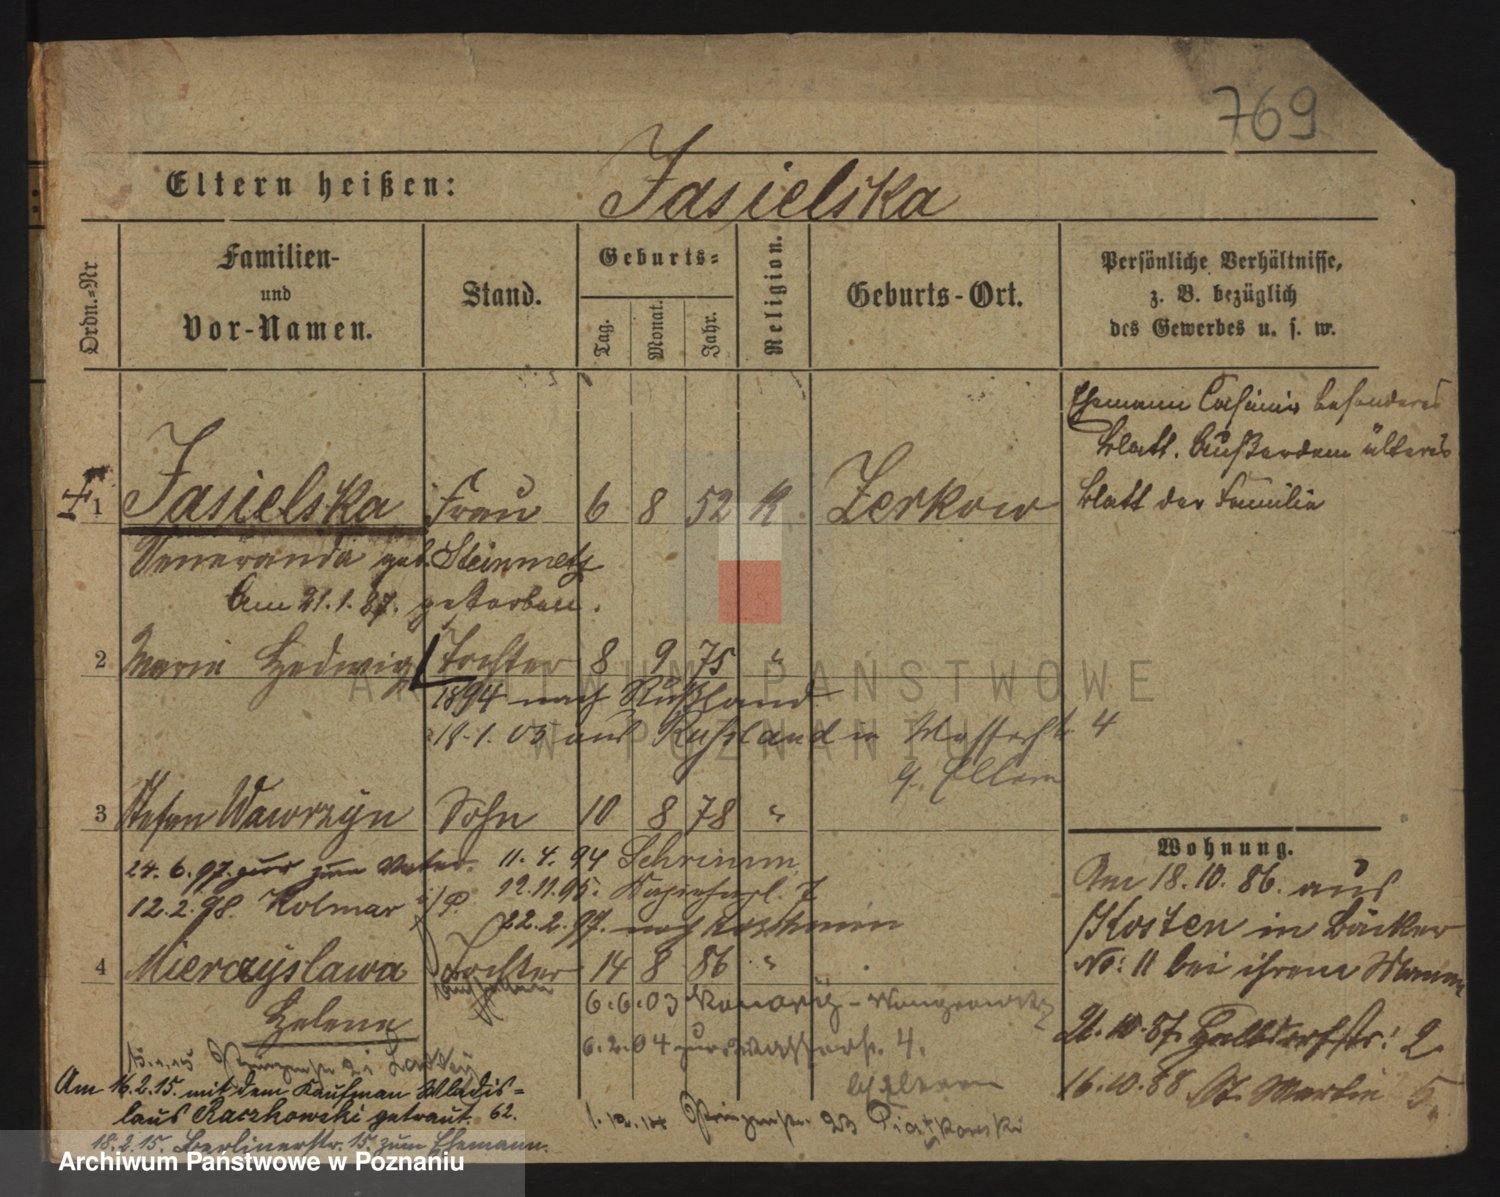 769
Eltern heißen: Jasielska
Ordn.-Nr
Familien-
und
Vor-Namen.
Stand.
Geburts-
Tag.
Monat.
Jahr.
Religion.
Geburts-Ort.
Persönliche Verhältnisse,
z. B. bezüglich
des Gewerbes u. s. w.
Ehemann Casimir besonderes
Blatt. Außerdem älteres
Blatt der Familie
1 Jasielska Frau 6 8 52 K Zerkow
Veneranda geb. Steinmetz
Am 21.1.87. gestorben.
2 Maria Hedwig Tochter 8 9 75 "
1894 nach Rußland
18.1.03 aus Russland in Wasserstr. 4
b. Eltern
3 Stefan Wawrzyn Sohn 10 8 78 "
24.6.97. zum Vater. 11.4.94 Schrimm
12.11.95.
12.2.98. Kolmar i/P.
22.2.97. nach
4 Mieczyslawa Tochter 14 8 86 "
Helene
6.6.03
6.2.04 Wasserstr. 4.
b. Eltern
Am 16.2.15. mit dem Kaufman Wladis-
laus Raczkowski getraut. 62.
18.2.15. Berlinerstr. 15 zum Ehemann.
1.10.14 23 Piatkowski
Wohnung.
Am 18.10.86. aus
Kosten in Bäcker
No: 11 bei ihrem Manne
21.10.87. Halbdorfstr: 2
16.10.88 St. Martin 5
ARCHIWUM PAŃSTWOWE
W POZNANIU
Archiwum Państwowe w Poznaniu